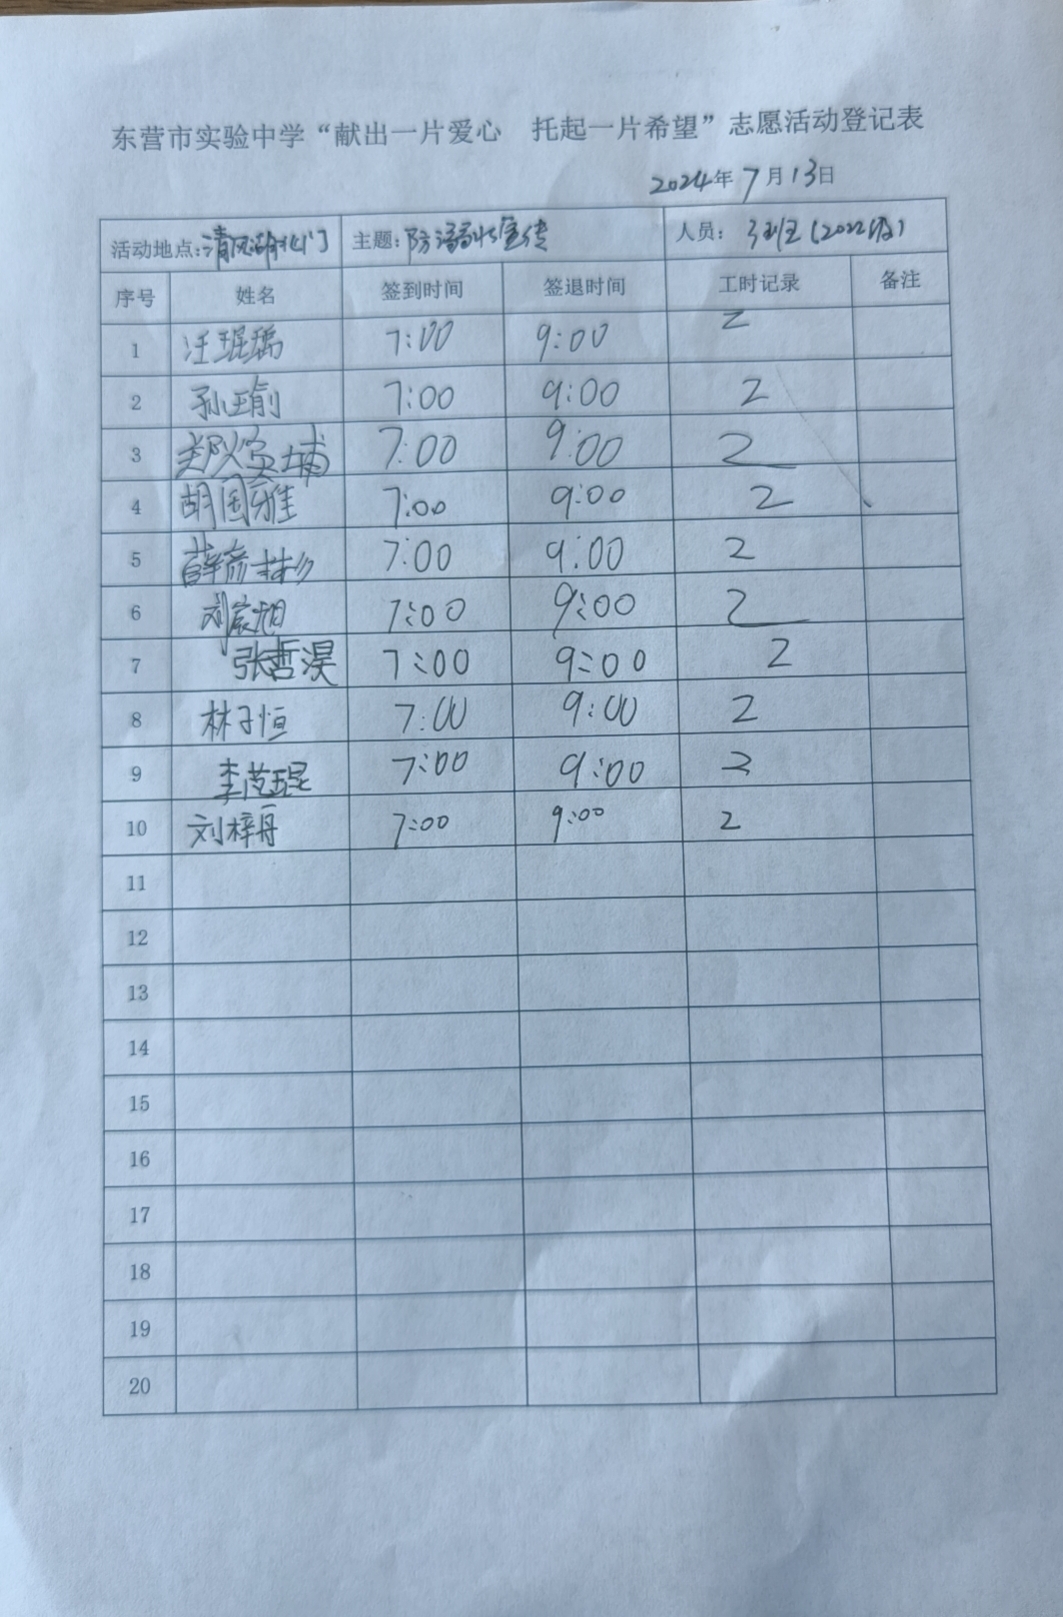 东营市实验中学“献出一片爱心 托起一片希望”志愿活动登记表
2024年7月13日
活动地点:清风湖北门 主题:防溺水宣传 人员: 3班(2022级)
序号 姓名 签到时间 签退时间 工时记录 备注
1 汪琨瑀 7:00 9:00 2
2 孙瑜 7:00 9:00 2
3 郑 7:00 9:00 2
4 胡国雅 7:00 9:00 2
5 薛彦彬 7:00 9:00 2
6 刘宸旭 7:00 9:00 2
7 张哲淏 7:00 9:00 2
8 林子恒 7:00 9:00 2
9 李茂琨 7:00 9:00 2
10 刘梓舟 7:00 9:00 2
11
12
13
14
15
16
17
18
19
20